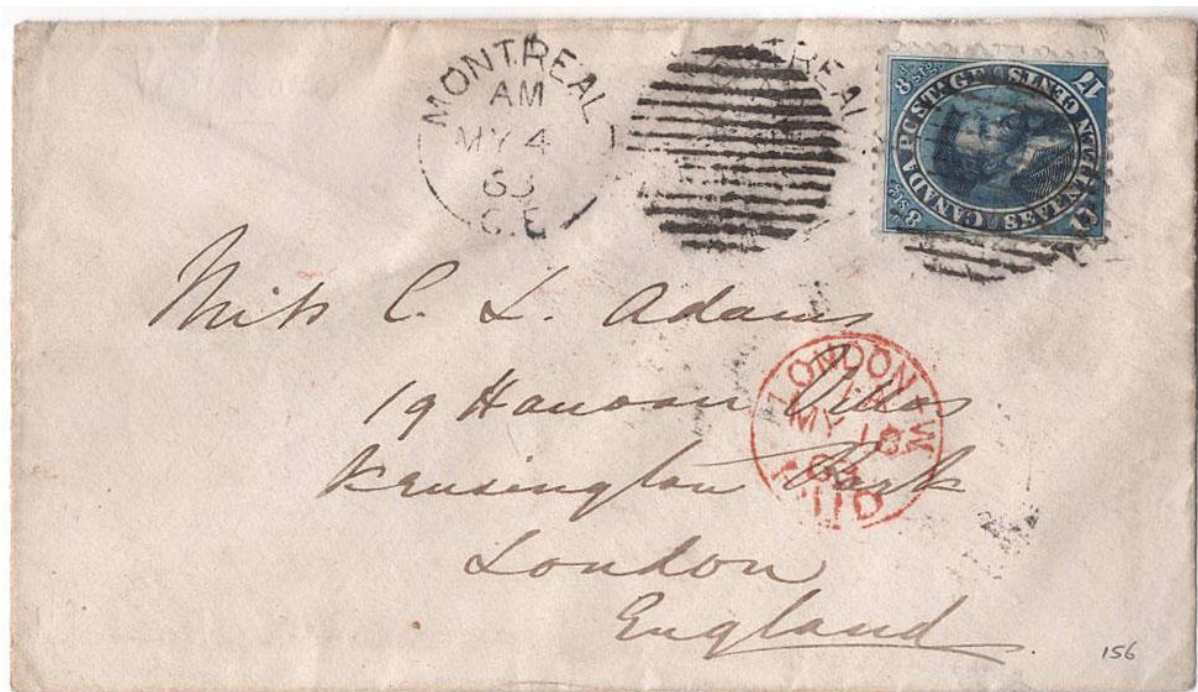 MONTREAL
AM
MY 4
C.E
TREAL
CANADA POSTAGE SEVENTEEN CENTS
8 d stg
8 d stg
17
17
Miss C. L. Adams
19 Hanover Villas
Kensington Park
London
England
LONDON W
MY 18
63
PAID
156